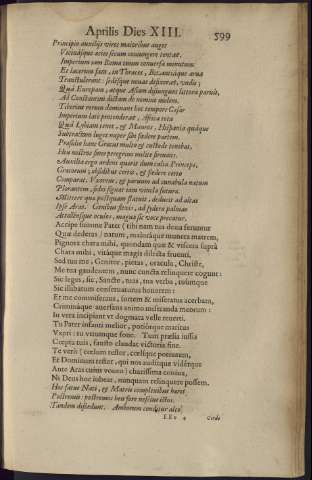 Aprilis Dies XIII. 599
Principio auxilijs vires maioribus auget
Vicinásque acies secum coniungere tentat.
Imperium tum Roma tenens conuersa
Et lacerum fatis, in Thraces, Bizantiáque arua
Transtulerant: sedésque nouas,
Quâ Europam, atque Asiam disiungunt littora paruis,
Ad Constantini dictam de nomine molem.
Tiberius rerum dominans hoc tempore Cæsar
Imperium latè protenderat, Africa tota
Quà Lybiam tenet, & Mauros, Hispania quáque
Subtractum longè nuper sibi sedere partem.
Præsulis hanc Græcus multo & custode tenebat,
Hinc nostros simul peregrino milite firmant.
Auxilia ergo ardens quærit dum talia Princeps,
Græcorum, obsidibus certis, & fœdere certo
Comparat. Vxorem, & paruum ad cunabula natum
Plorantem, fidei signat iam vincla futura.
Mittere qua postquam statuit, deducit ad altas
Ipse Aras. Genibus flexis, ad sydera palmas
Attollénsque oculos, magna sic voce precatur.
Accipe summe Pater (tibi nam sua dona feruntur
Quæ dederas) natum, mæstámque munera matrem,
Pignora chara mihi, quondam quæ & viscera suprà
Chara mihi, vitáque magis dilecta fruenti.
Sed tua me, Genitor, pietas, oracula, Christe,
Me tea gaudentem, nunc cuncta relinquere cogunt:
Sic leges, sic, Sancte, tuas, tua verba, tuúmque
Sic illibatum conseruaturus honorem:
Et me commiserans, sortem & miseratus acerbam,
Crimináque auersans animo miseranda meorum:
In vera incipiant vt dogmata velle reuerti.
Tu Pater infanti melior, potiórque maritus
Vxori tu vtrumque foue. Tum prælia iussa
Cœpta tuis, fausto claudat victoria fine.
Te verò (cœlum testor, cœlíque potentem,
Et Dominum testor, qui nos auditque vidétque
Ante Aras cuius vouto) charissima coniux,
Ni Deus hoc iubeat, nunquam relinquere possem.
Hæc fatus Nati, & Matris complexibus hæret
Postremis: postremos heu fore nescius ictos.
Tandem discedunt. Amborum conditur alto
EEe 4 Corde